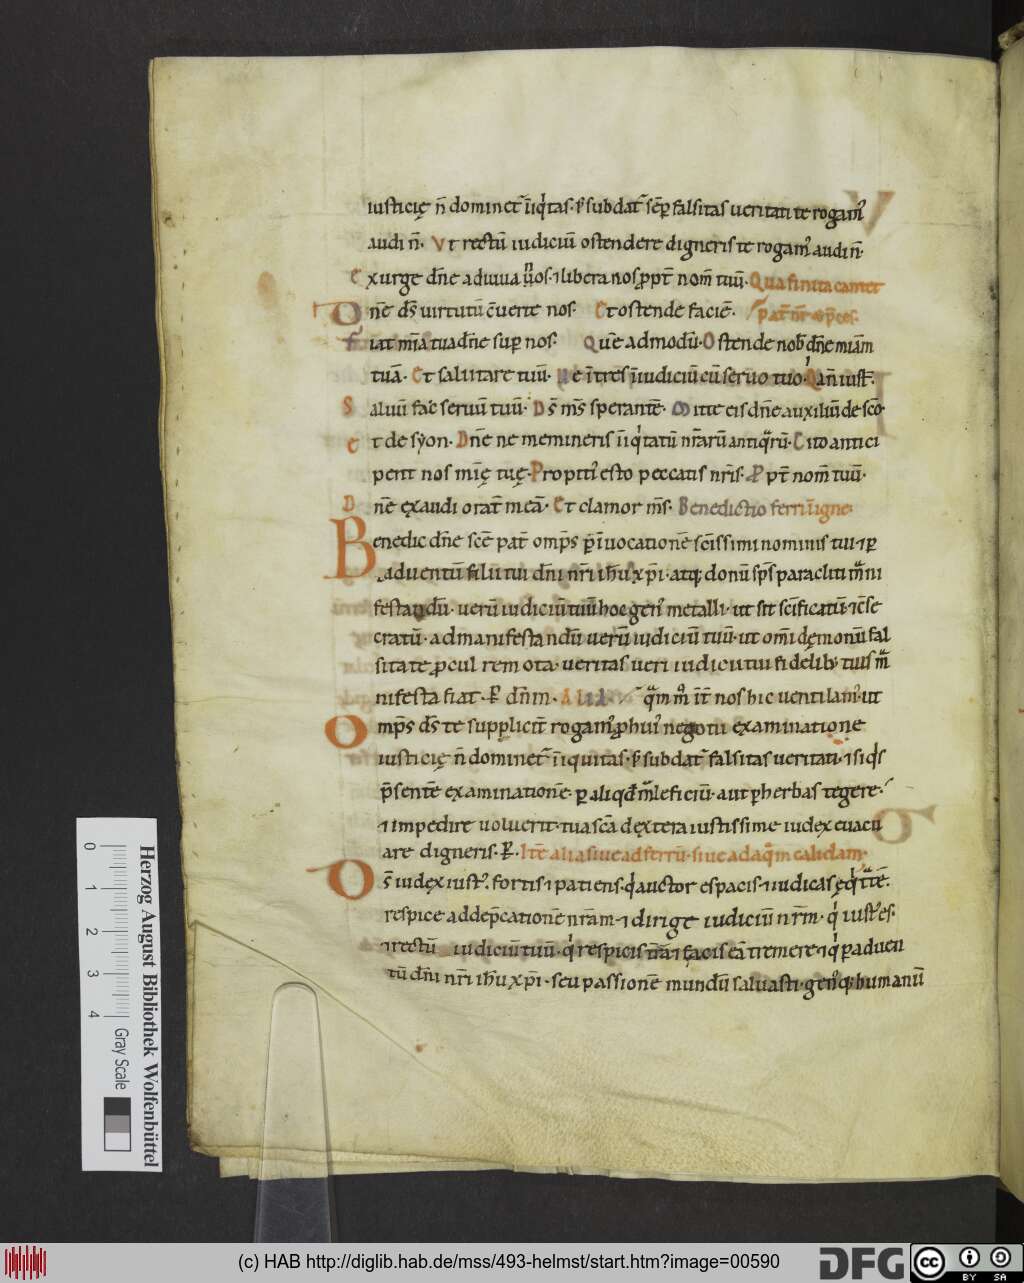 iusticię n̄ dominet᷑ iniq̇tas· s; subdat᷑ sēp falsitas ueritati te rogam᷒
audi n̄· Vt rectū iudiciū ostendere digneris te rogam᷒ audi n̄·
Exurge dn̄e adiuua nos· ⁊ libera nos ꝓpt̄ nom̄ tuū· Qua finita cantet
Dn̄e ds̄ uirtutū c̄uerte nos· Et ostende faciē· pat̄ nr̄ & p̄ces·
Fiat mīa tua dn̄e sup nos· Quē admodū· Ostende nob̄ dn̄e miām
tuā· Et salutare tuū· Ne īt̄res ī iudiciū cū seruo tuo· Q̇an̄ iust̄·
Saluū fac seruū tuū· Ds̄ ms̄ sperantē· Mitte eis dn̄e auxiliū de scō·
Et de syon· Dn̄e ne memineris iniq̇tatū nr̄arū antiq̄rū· Cito antici
pent nos mīę tuę· Propiti᷒ esto peccatis nr̄is· Ꝓpt̄ nom̄ tuū·
Dn̄e exaudi orat̄ meā· Et clamor ms̄· Benedictio ferri ī igne·
Benedic dn̄e scē pat̄ omp̄s p̄ īuocationē scīssimi nominis tui ⁊ ꝑ
aduentū filii tui dn̄i nr̄i ih̄u xp̄i· atq; donū sp̄s paracliti· ma̅ni
festandū· uerū iudiciū tuū hoc gen᷒ metalli· ut sit scīficatū· ⁊ c̄se
cratū· ad manifestandū uerū iudiciū tuū· ut om̄i dęmonū fal
sitate ꝓcul remota· ueritas ueri iudicii tui fidelib; tuis ma̅
nifesta fiat· ꝑ dn̄m· Alia·
Omp̄s ds̄ te suppliciт rogam᷒ ꝓ hui᷒ negotii examinatione
iusticię n̄ dominet᷑ iniquitas· s; subdat᷑ falsitas ueritati· ⁊ si q̇s
p̄sentē examinationē· ꝑ aliqd̄ ma̅leficiū· aut ꝑ herbas tegere·
⁊ impedire uoluerit· tua scā dextera iustissime iudex euacu
are digneris· ꝑ· Itē alia siue ad ferrū· siue ad aq̄m calidam·
Ds̄ iudęx iust᷒· fortis ⁊ patiens· q̇ auctor es pacis· ⁊ iudicas ęq̄tatē·
respice ad dep̄cationē nr̄am· ⁊ dirige iudiciū nr̄m· q̇ iust᷒ es·
⁊ rectū iudiciū tuū· q̇ respicis tr̄ā ⁊ facis eā tremere· ⁊ q̇ ꝑ aduen
tū dn̄i nr̄i ih̄u xp̄i· seu passionē mundū saluasti· gen᷒q; humanū
Herzog August Bibliothek Wolfenbüttel
0 1 2 3 4 Gray Scale
(c) HAB http://diglib.hab.de/mss/493-helmst/start.htm?image=00590
DFG
cc BY SA